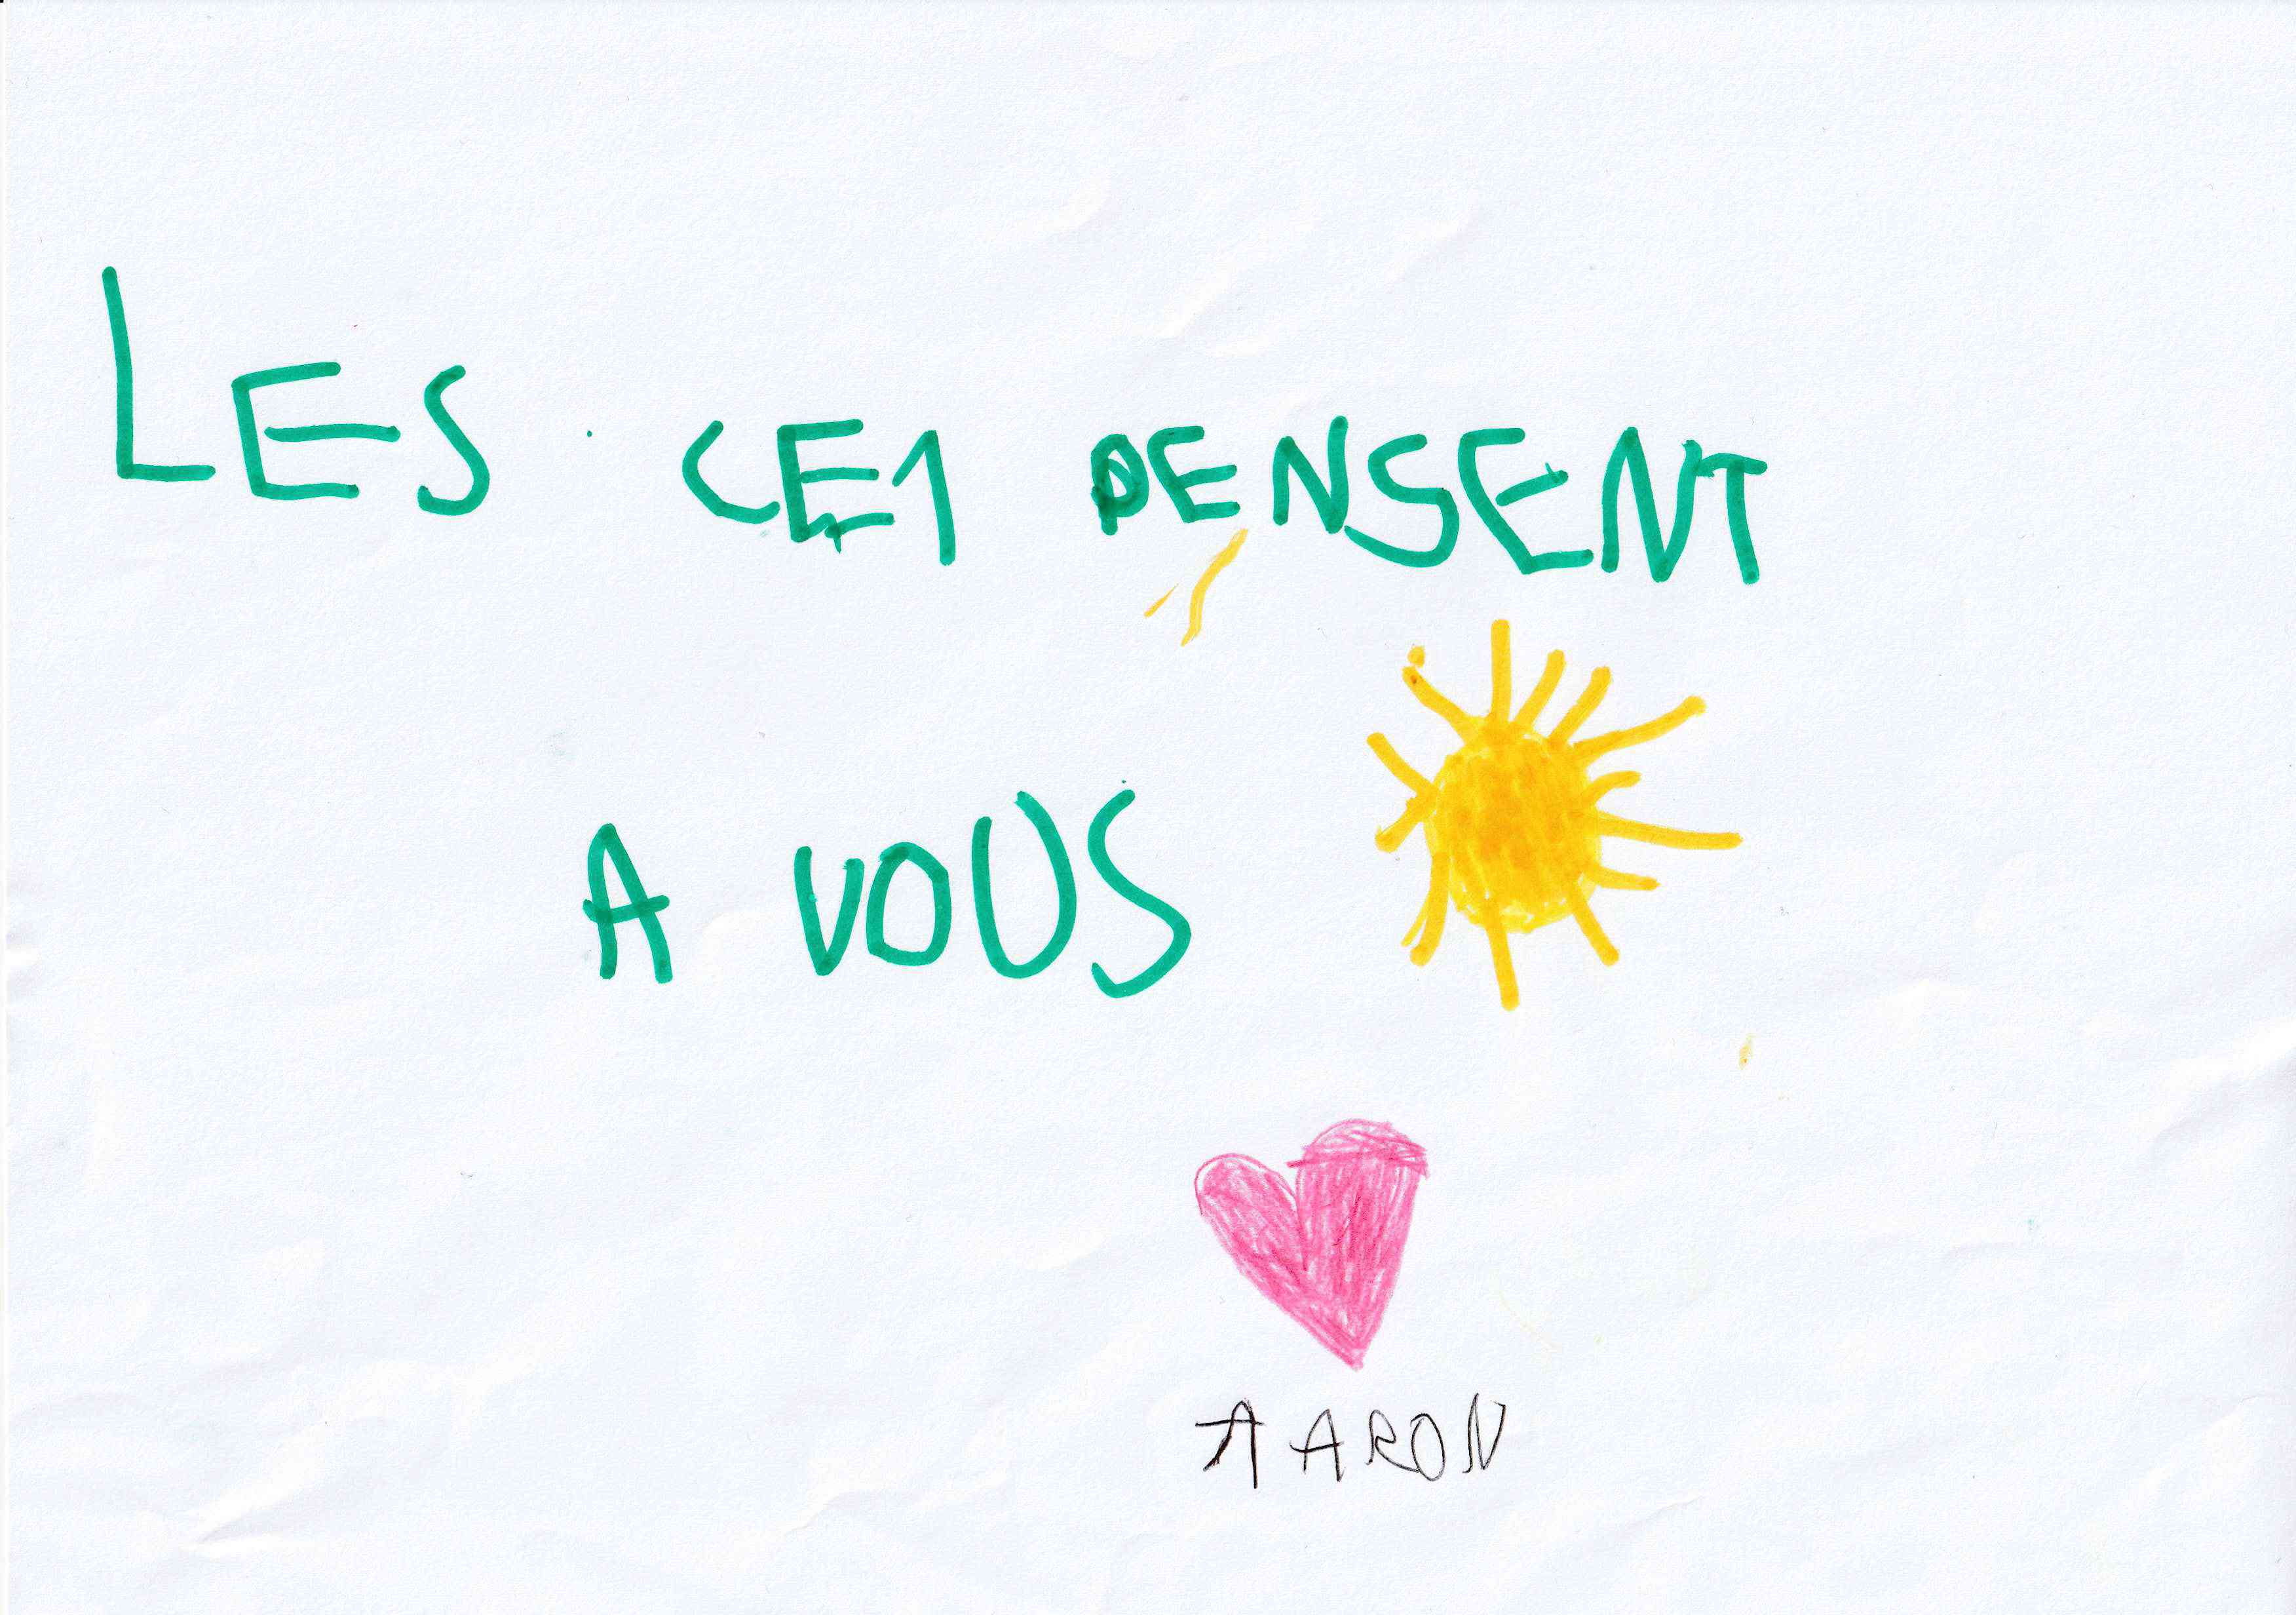 LES CE1 PENSENT
A VOUS
AARON